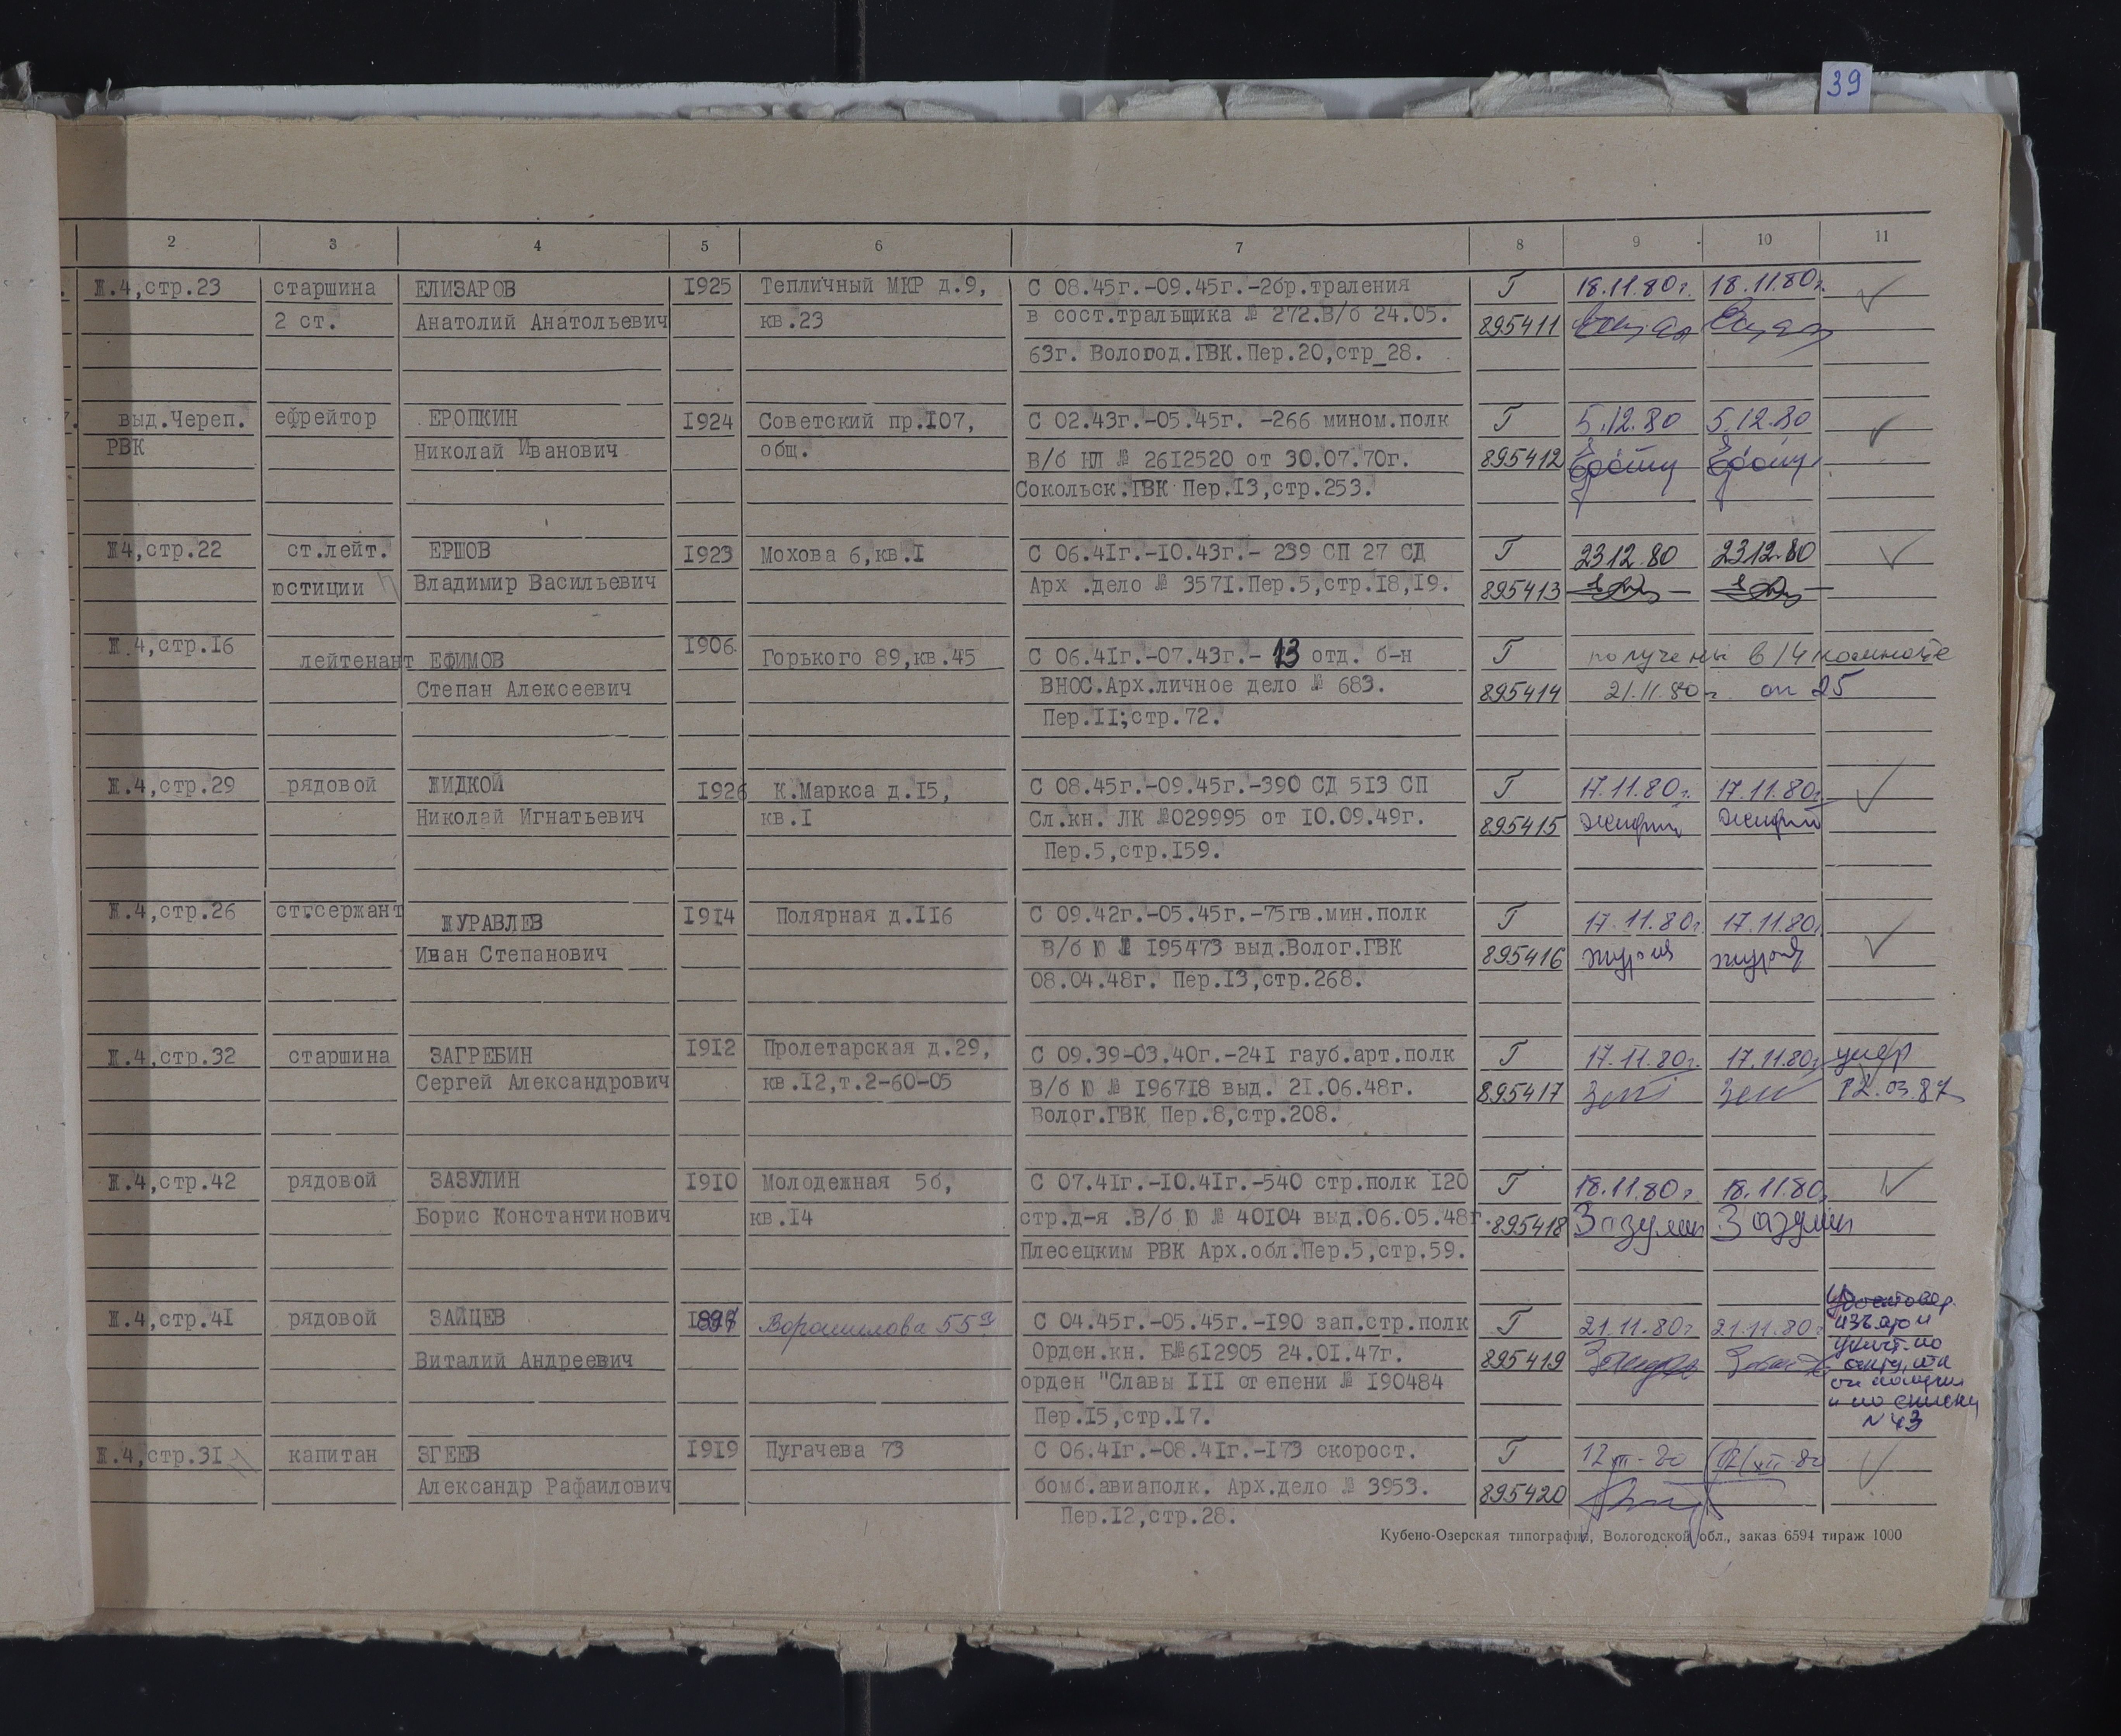 39
2 3 4 5 6 7 8 9 10 11
Ж.4,стр.23 старшина ЕЛИЗАРОВ 1925 Тепличный МКР д.9, С 08.45г.-09.45г.-2бр.траления Г 18.11.80г. 18.11.80г.
2 ст. Анатолий Анатольевич кв.23 в сост.тральщика № 272.В/б 24.05. 895411
63г. Вологод.ГВК.Пер.20,стр_28.
выд.Череп. ефрейтор ЕРОПКИН 1924 Советский пр.107, С 02.43г.-05.45г. -266 мином.полк Г 5.12.80 5.12.80
РВК Николай Иванович общ. В/б НЛ № 2612520 от 30.07.70г. 895412
Сокольск.ГВК Пер.13,стр.253.
Ж4,стр.22 ст.лейт. ЕРШОВ 1923 Мохова 6,кв.1 С 06.41г.-10.43г.- 239 СП 27 СД Г 23.12.80 23.12.80
юстиции Владимир Васильевич Арх .дело № 3571.Пер.5,стр.18,19. 895413
Ж.4,стр.16 лейтенант ЕФИМОВ 1906 Горького 89,кв.45 С 06.41г.-07.43г.- 13 отд. б-н Г получены в 14 комнате
Степан Алексеевич ВНОС.Арх.личное дело № 683. 895414 21.11.80г. сп 25
Пер.11;стр.72.
Ж.4,стр.29 рядовой ЖИДКОЙ 1926 К.Маркса д.15, С 08.45г.-09.45г.-390 СД 513 СП Г 17.11.80г. 17.11.80г.
Николай Игнатьевич кв.1 Сл.кн. ЛК №029995 от 10.09.49г. 895415
Пер.5,стр.159.
Ж.4,стр.26 ст.сержант ЖУРАВЛЕВ 1914 Полярная д.116 С 09.42г.-05.45г.-75гв.мин.полк Г 17.11.80г. 17.11.80г.
Иван Степанович В/б Ю № 195473 выд.Волог.ГВК 895416
08.04.48г. Пер.13,стр.268.
Ж.4,стр.32 старшина ЗАГРЕБИН 1912 Пролетарская д.29, С 09.39-03.40г.-241 гауб.арт.полк Г 17.11.80г. 17.11.80г. умер
Сергей Александрович кв.12,т.2-60-05 В/б Ю № 196718 выд. 21.06.48г. 895417
Волог.ГВК Пер.8,стр.208.
Ж.4,стр.42 рядовой ЗАЗУЛИН 1910 Молодежная 5б, С 07.41г.-10.41г.-540 стр.полк 120 Г 18.11.80г. 18.11.80г.
Борис Константинович кв.14 стр.д-я .В/б Ю № 40104 выд.06.05.48г. 895418 Зазулин Зазулин
Плесецким РВК Арх.обл.Пер.5,стр.59.
Ж.4,стр.41 рядовой ЗАЙЦЕВ Ворошилова 55 С 04.45г.-05.45г.-190 зап.стр.полк Г 21.11.80г 21.11.80г
Виталий Андреевич Орден.кн. Б№612905 24.01.47г. 895419
орден "Славы III степени № 190484
Пер.15,стр.17. N 43
Ж.4,стр.31 капитан ЗГЕЕВ 1919 Пугачева 73 С 06.41г.-08.41г.-173 скорост. Г
Александр Рафаилович бомб.авиаполк. Арх.дело № 3953. 895420
Пер.12,стр.28.
Кубено-Озерская типография, Вологодской обл., заказ 6594 тираж 1000